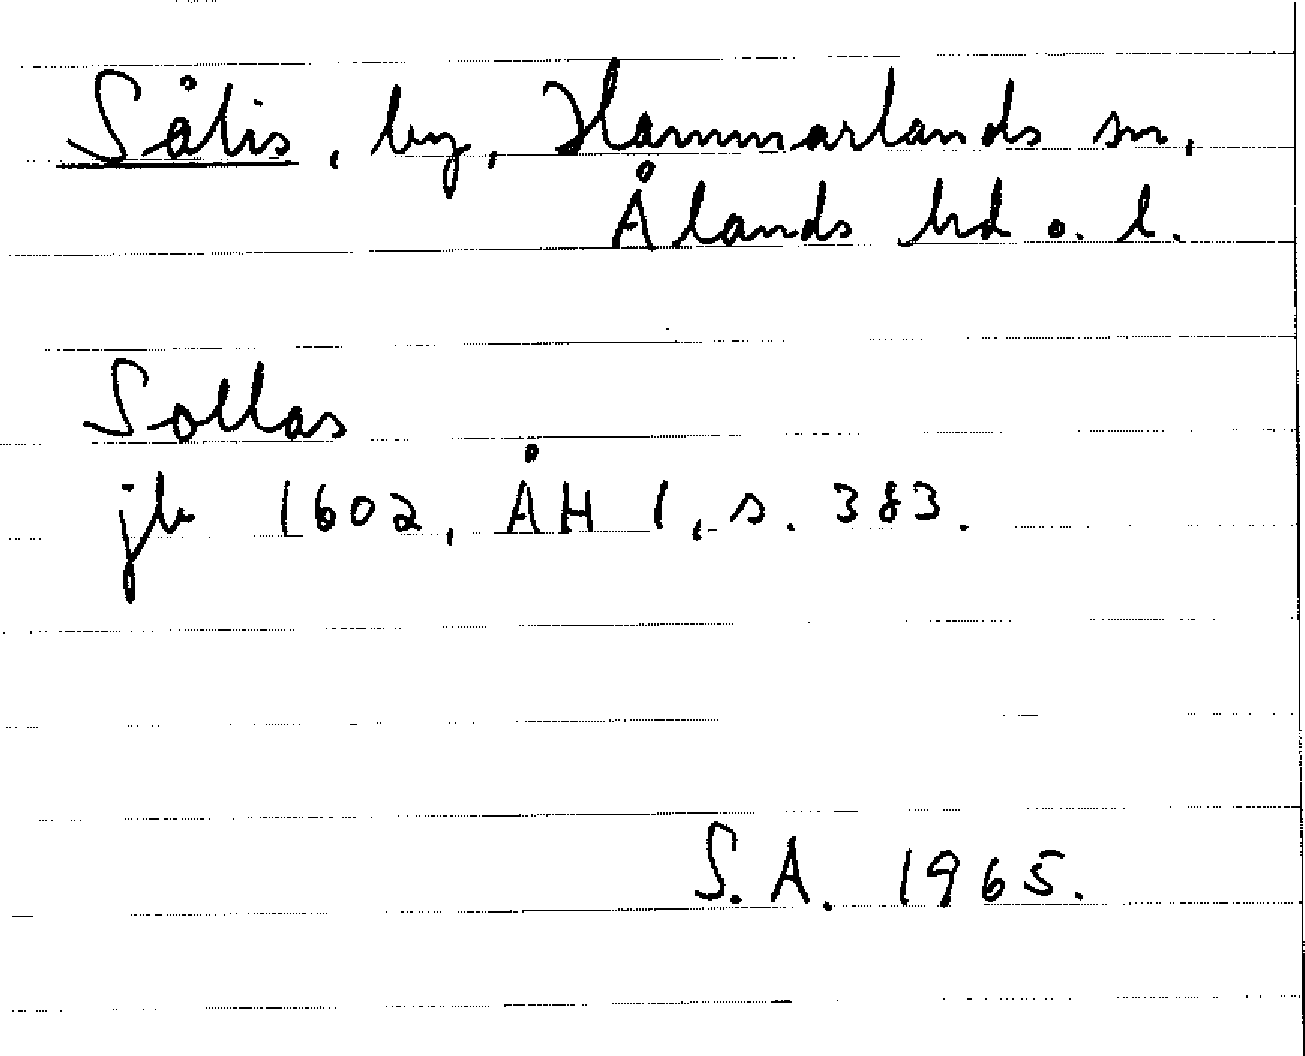 Sålis, by, Hammarlands sn,
Ålands hd o. l.
Sollas
jb 1602, ÅH 1, s. 383.
S. A. 1965.